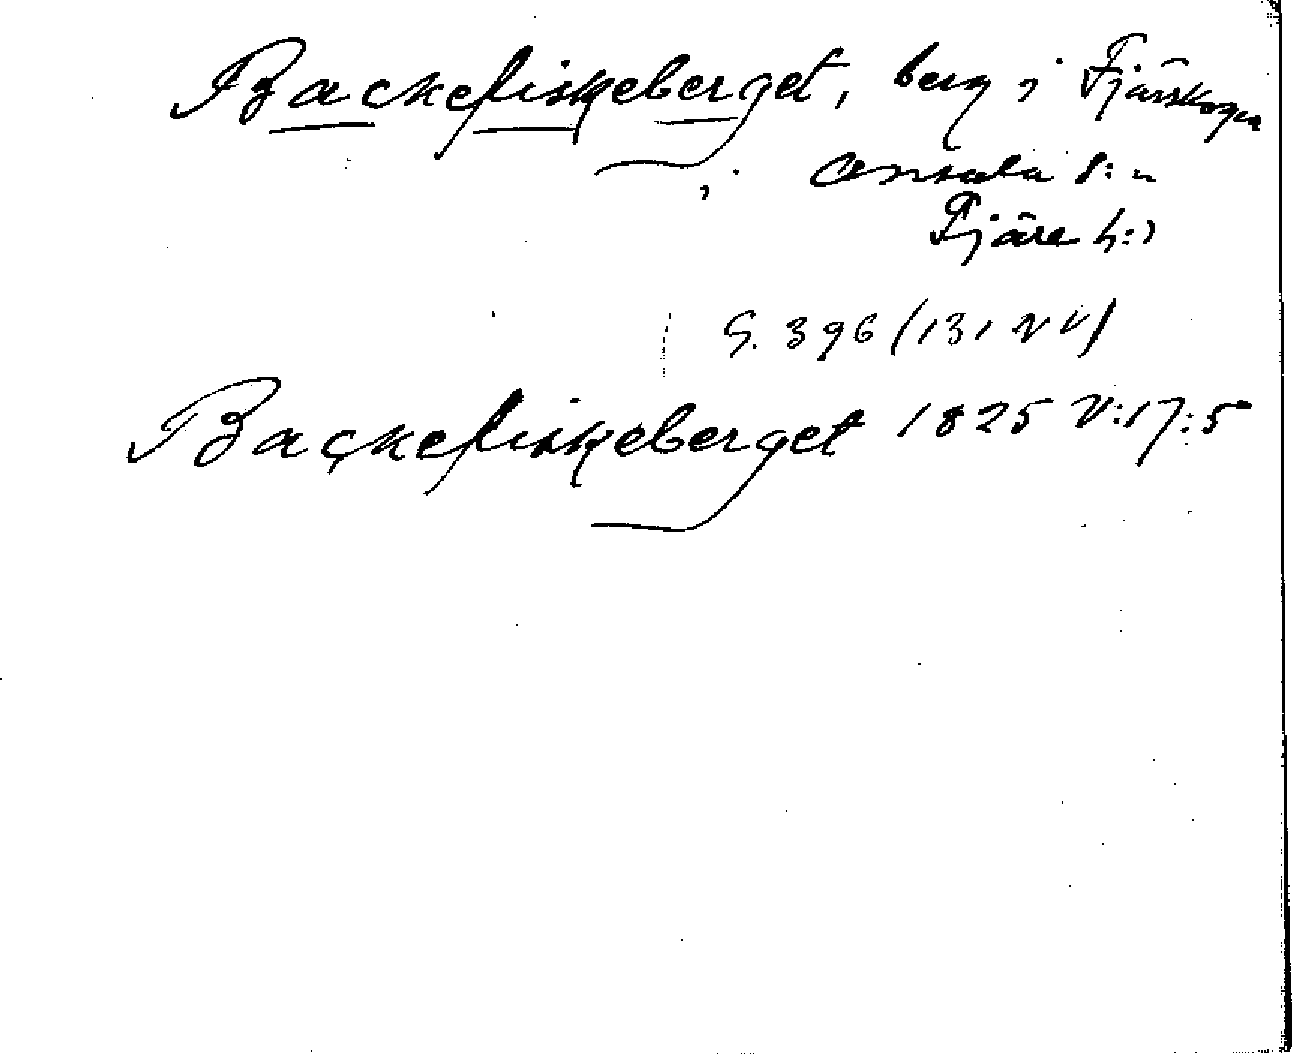 Backefiskeberget, berg i Fjärskogen
i Onsala s:n
Fjäre h:d
S. 396 (131 N V)
Backefiskeberget 1825 V:17:5